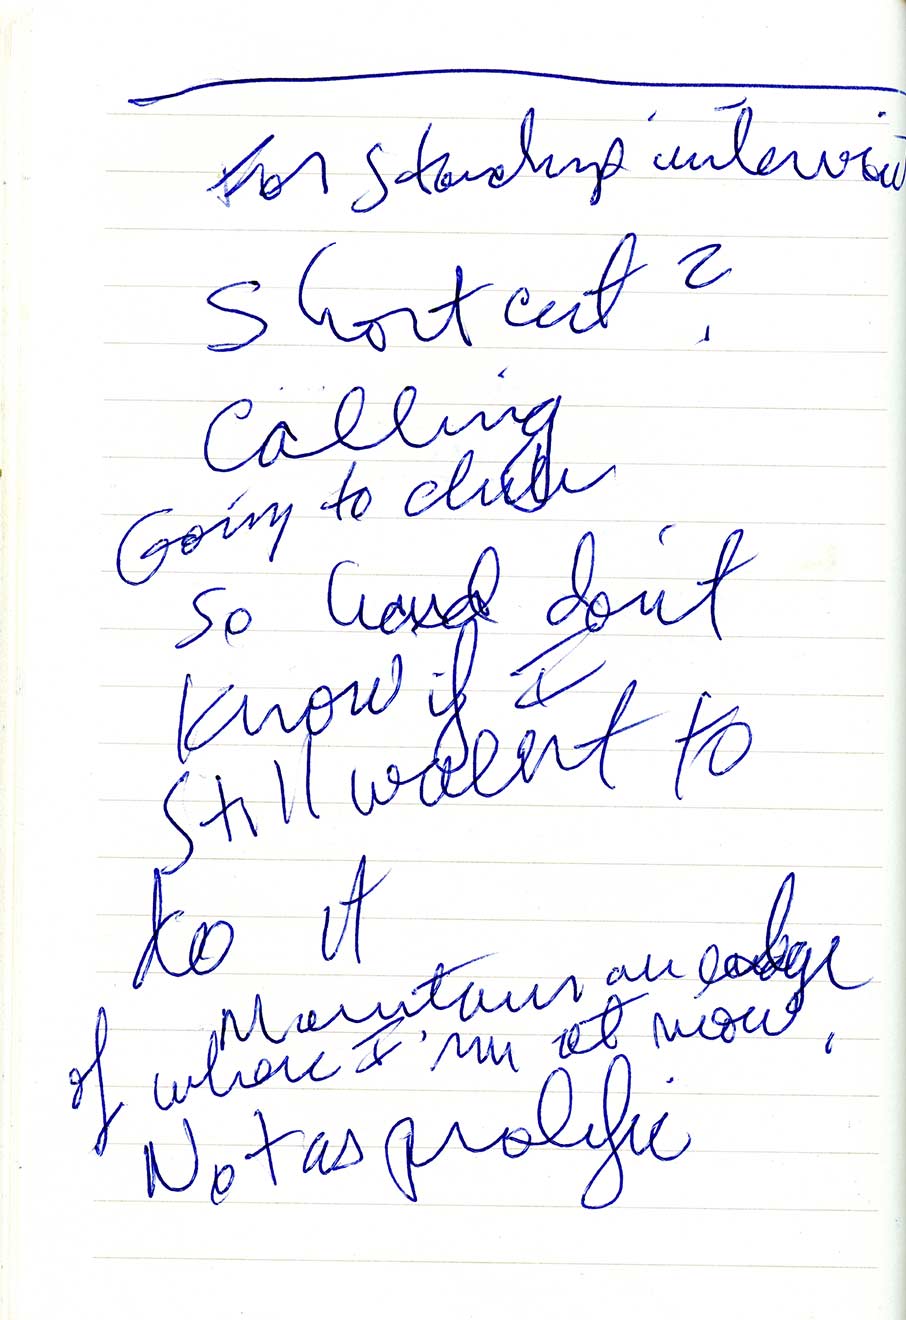 for standup interview
Shortcut?
Calling
Going to club
so hard don't
know if I
still want to
do it
Maintain an edge
of where I'm at now.
Not as prolific